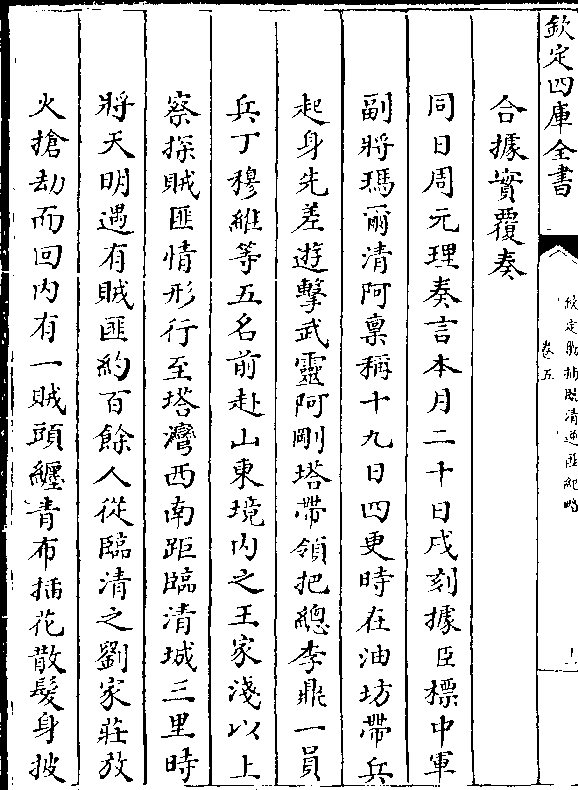 欽定四庫全書
欽定勦捕臨清逆匪紀略
卷五
十一
合據實覆奏
同日周元理奏言本月二十日戌刻據臣標中軍
副將瑪爾清阿稟稱十九日四更時在油坊帶兵
起身先差遊擊武靈阿剛塔帶領把總李鼎一員
兵丁穆維等五名前赴山東境內之王家淺以上
察探賊匪情形行至塔灣西南距臨清城三里時
將天明遇有賊匪約百餘人從臨清之劉家莊放
火搶劫而回內有一賊頭纏青布插花散髮身披